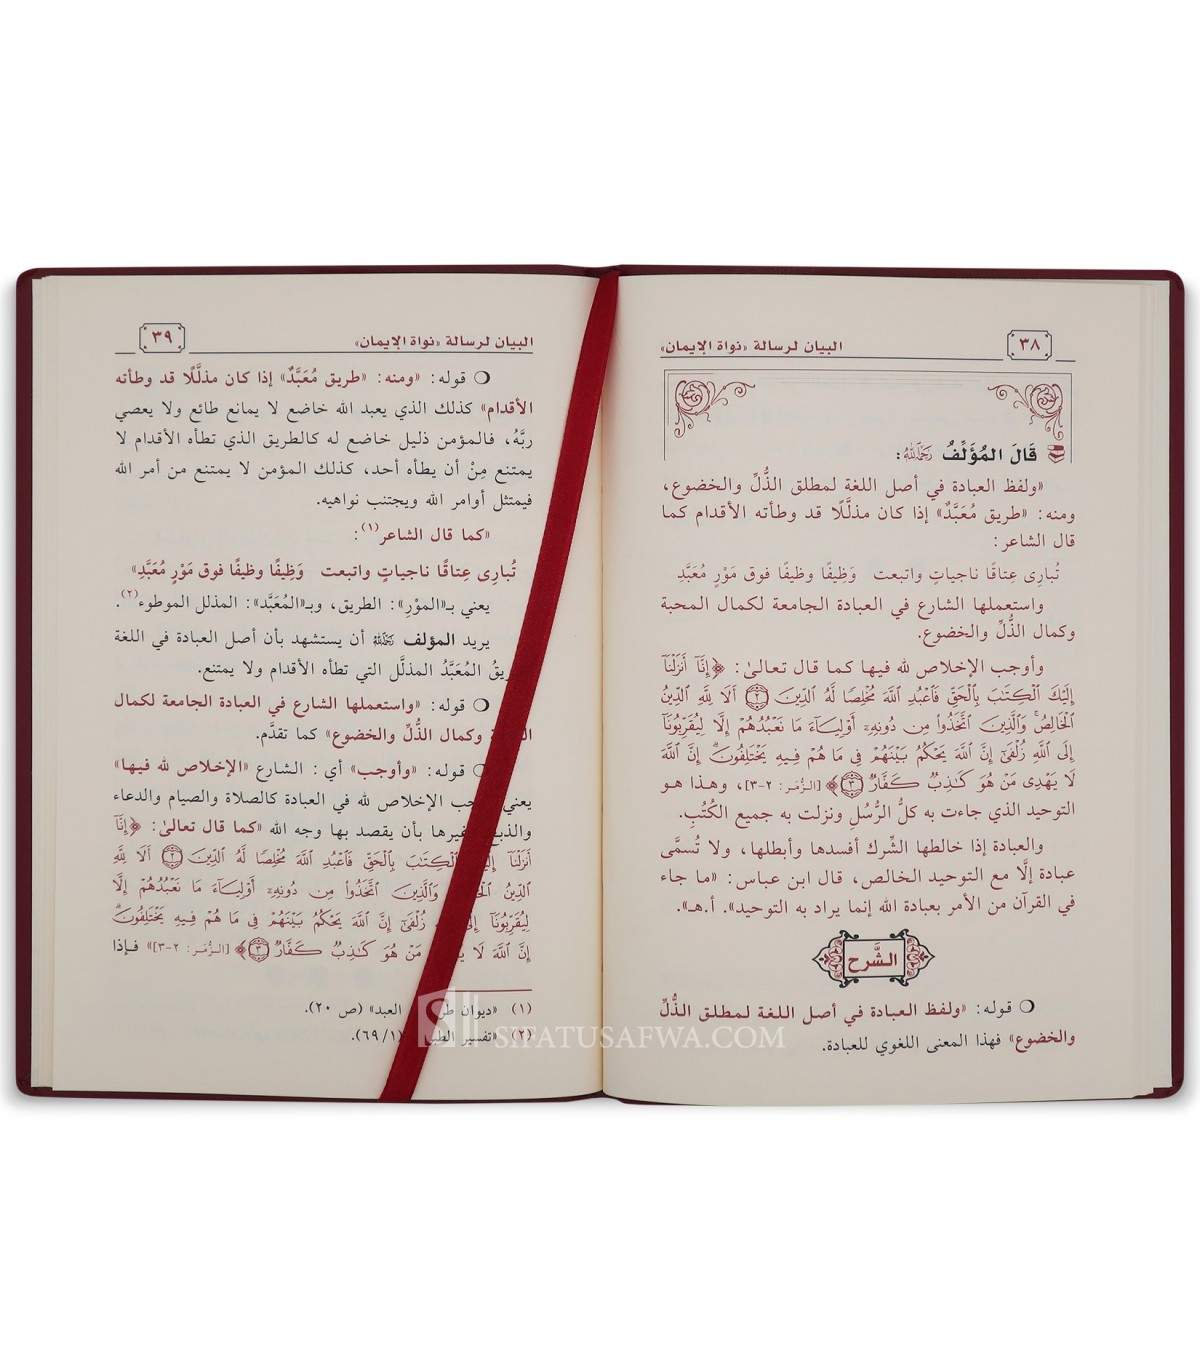 ٣٨
البيان لرسالة «نواة الإيمان»
قَالَ المُؤَلِّفُ رَحِمَهُ اللَّهُ:
«ولفظ العبادة في أصل اللغة لمطلق الذُّلِّ والخضوع،
ومنه: «طريق مُعَبَّد» إذا كان مذلَّلًا قد وطأته الأقدام كما
قال الشاعر:
تُبارِى عِتاقًا ناجياتٍ واتبعت وَظِيفًا وظيفًا فوق مَوْرٍ مُعَبَّدِ
واستعملها الشارع في العبادة الجامعة لكمال المحبة
وكمال الذُّلِّ والخضوع.
وأوجب الإخلاص لله فيها كما قال تعالىٰ: ﴿إِنَّآ أَنزَلْنَآ
إِلَيْكَ ٱلْكِتَٰبَ بِٱلْحَقِّ فَٱعْبُدِ ٱللَّهَ مُخْلِصًا لَّهُ ٱلدِّينَ ٢ أَلَا لِلَّهِ ٱلدِّينُ
ٱلْخَالِصُ ۚ وَٱلَّذِينَ ٱتَّخَذُوا۟ مِن دُونِهِۦٓ أَوْلِيَآءَ مَا نَعْبُدُهُمْ إِلَّا لِيُقَرِّبُونَآ
إِلَى ٱللَّهِ زُلْفَىٰٓ إِنَّ ٱللَّهَ يَحْكُمُ بَيْنَهُمْ فِى مَا هُمْ فِيهِ يَخْتَلِفُونَ ۗ إِنَّ ٱللَّهَ
لَا يَهْدِى مَنْ هُوَ كَٰذِبٌ كَفَّارٌ ٣﴾ [الزُّمَر: ٢-٣]، وهذا هو
التوحيد الذي جاءت به كلُّ الرُّسُلِ ونزلت به جميع الكُتُبِ.
والعبادة إذا خالطها الشِّرك أفسدها وأبطلها، ولا تُسمَّى
عبادة إلَّا مع التوحيد الخالص، قال ابن عباس: «ما جاء
في القرآن من الأمر بعبادة الله إنما يراد به التوحيد». أ.هـ».
الشَّرح
قوله: «ولفظ العبادة في أصل اللغة لمطلق الذُّلِّ
والخضوع» فهذا المعنى اللغوي للعبادة.
البيان لرسالة «نواة الإيمان»
٣٩
قوله: «ومنه: «طريق مُعَبَّدٌ» إذا كان مذلَّلًا قد وطأته
الأقدام» كذلك الذي يعبد الله خاضع لا يمانع طائع ولا يعصي
ربَّهُ، فالمؤمن ذليل خاضع له كالطريق الذي تطأه الأقدام لا
يمتنع مِنْ أن يطأه أحد، كذلك المؤمن لا يمتنع من أمر الله
فيمتثل أوامر الله ويجتنب نواهيه.
«كما قال الشاعر(١):
تُبارِى عِتاقًا ناجياتٍ واتبعت وَظِيفًا وظيفًا فوق مَوْرٍ مُعَبَّدِ»
يعني بـ«الموْرِ»: الطريق، وبـ«المُعَبَّد»: المذلل الموطوء(٢).
يريد المؤلف رَحِمَهُ اللَّهُ أن يستشهد بأن أصل العبادة في اللغة
المُعَبَّدُ المذلَّل التي تطأه الأقدام ولا يمتنع.
قوله: «واستعملها الشارع في العبادة الجامعة لكمال
وكمال الذُّلِّ والخضوع» كما تقدَّم.
قوله: «وأوجب» أي: الشارع «الإخلاص لله فيها»
يعني الإخلاص لله في العبادة كالصلاة والصيام والدعاء
والذبح بأن يقصد بها وجه الله «كما قال تعالىٰ: ﴿إِنَّآ
أَنزَلْنَآ ٱلْكِتَٰبَ بِٱلْحَقِّ فَٱعْبُدِ ٱللَّهَ مُخْلِصًا لَّهُ ٱلدِّينَ ٢ أَلَا لِلَّهِ
ٱلدِّينُ وَٱلَّذِينَ ٱتَّخَذُوا۟ مِن دُونِهِۦٓ أَوْلِيَآءَ مَا نَعْبُدُهُمْ إِلَّا
لِيُقَرِّبُونَآ زُلْفَىٰٓ إِنَّ ٱللَّهَ يَحْكُمُ بَيْنَهُمْ فِى مَا هُمْ فِيهِ يَخْتَلِفُونَ ۗ
إِنَّ ٱللَّهَ لَا مَنْ هُوَ كَٰذِبٌ كَفَّارٌ ٣﴾ [الزُّمَر: ٢-٣]» فإذا
(١) «ديوان العبد» (ص ٢٠).
(٢) «تفسير (١/ ٦٩).
SIFATUSAFWA.COM